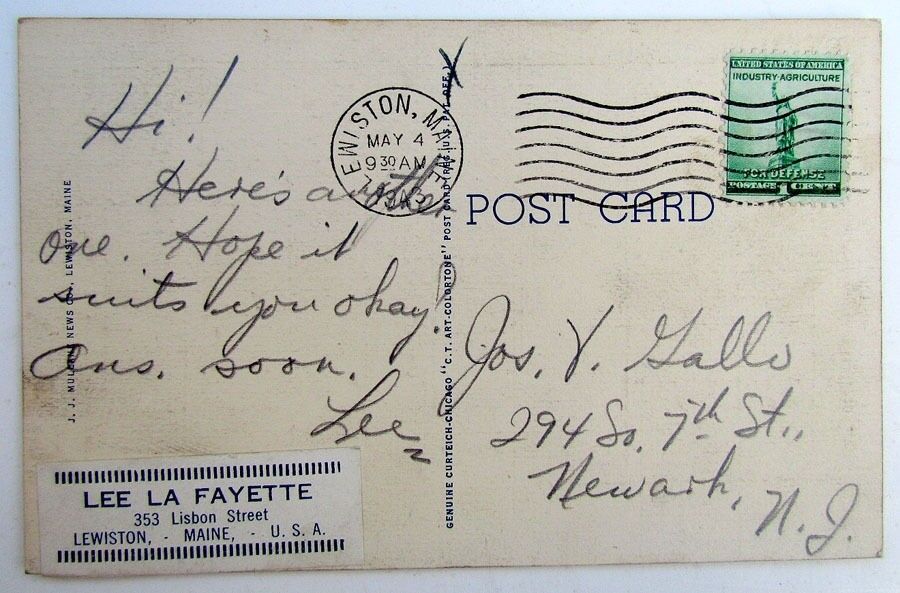 Hi!
Here's another
one. Hope it
suits you okay!
Ans. soon.
Lee
LEE LA FAYETTE
353 Lisbon Street
LEWISTON, - MAINE, - U. S. A.
J. J. NEWS LEWISTON, MAINE
GENUINE CURTEICH-CHICAGO "C.T. ART-COLORTONE" POST CARD (REG. U.S. PAT. OFF.)
LEWISTON,
MAY 4
9 30 AM
POST CARD
UNITED STATES OF AMERICA
INDUSTRY·AGRICULTURE
FOR DEFENSE
POSTAGE 1 CENT
Jos. V. Gallo
294 So. 7th St.,
Newark, N.J.